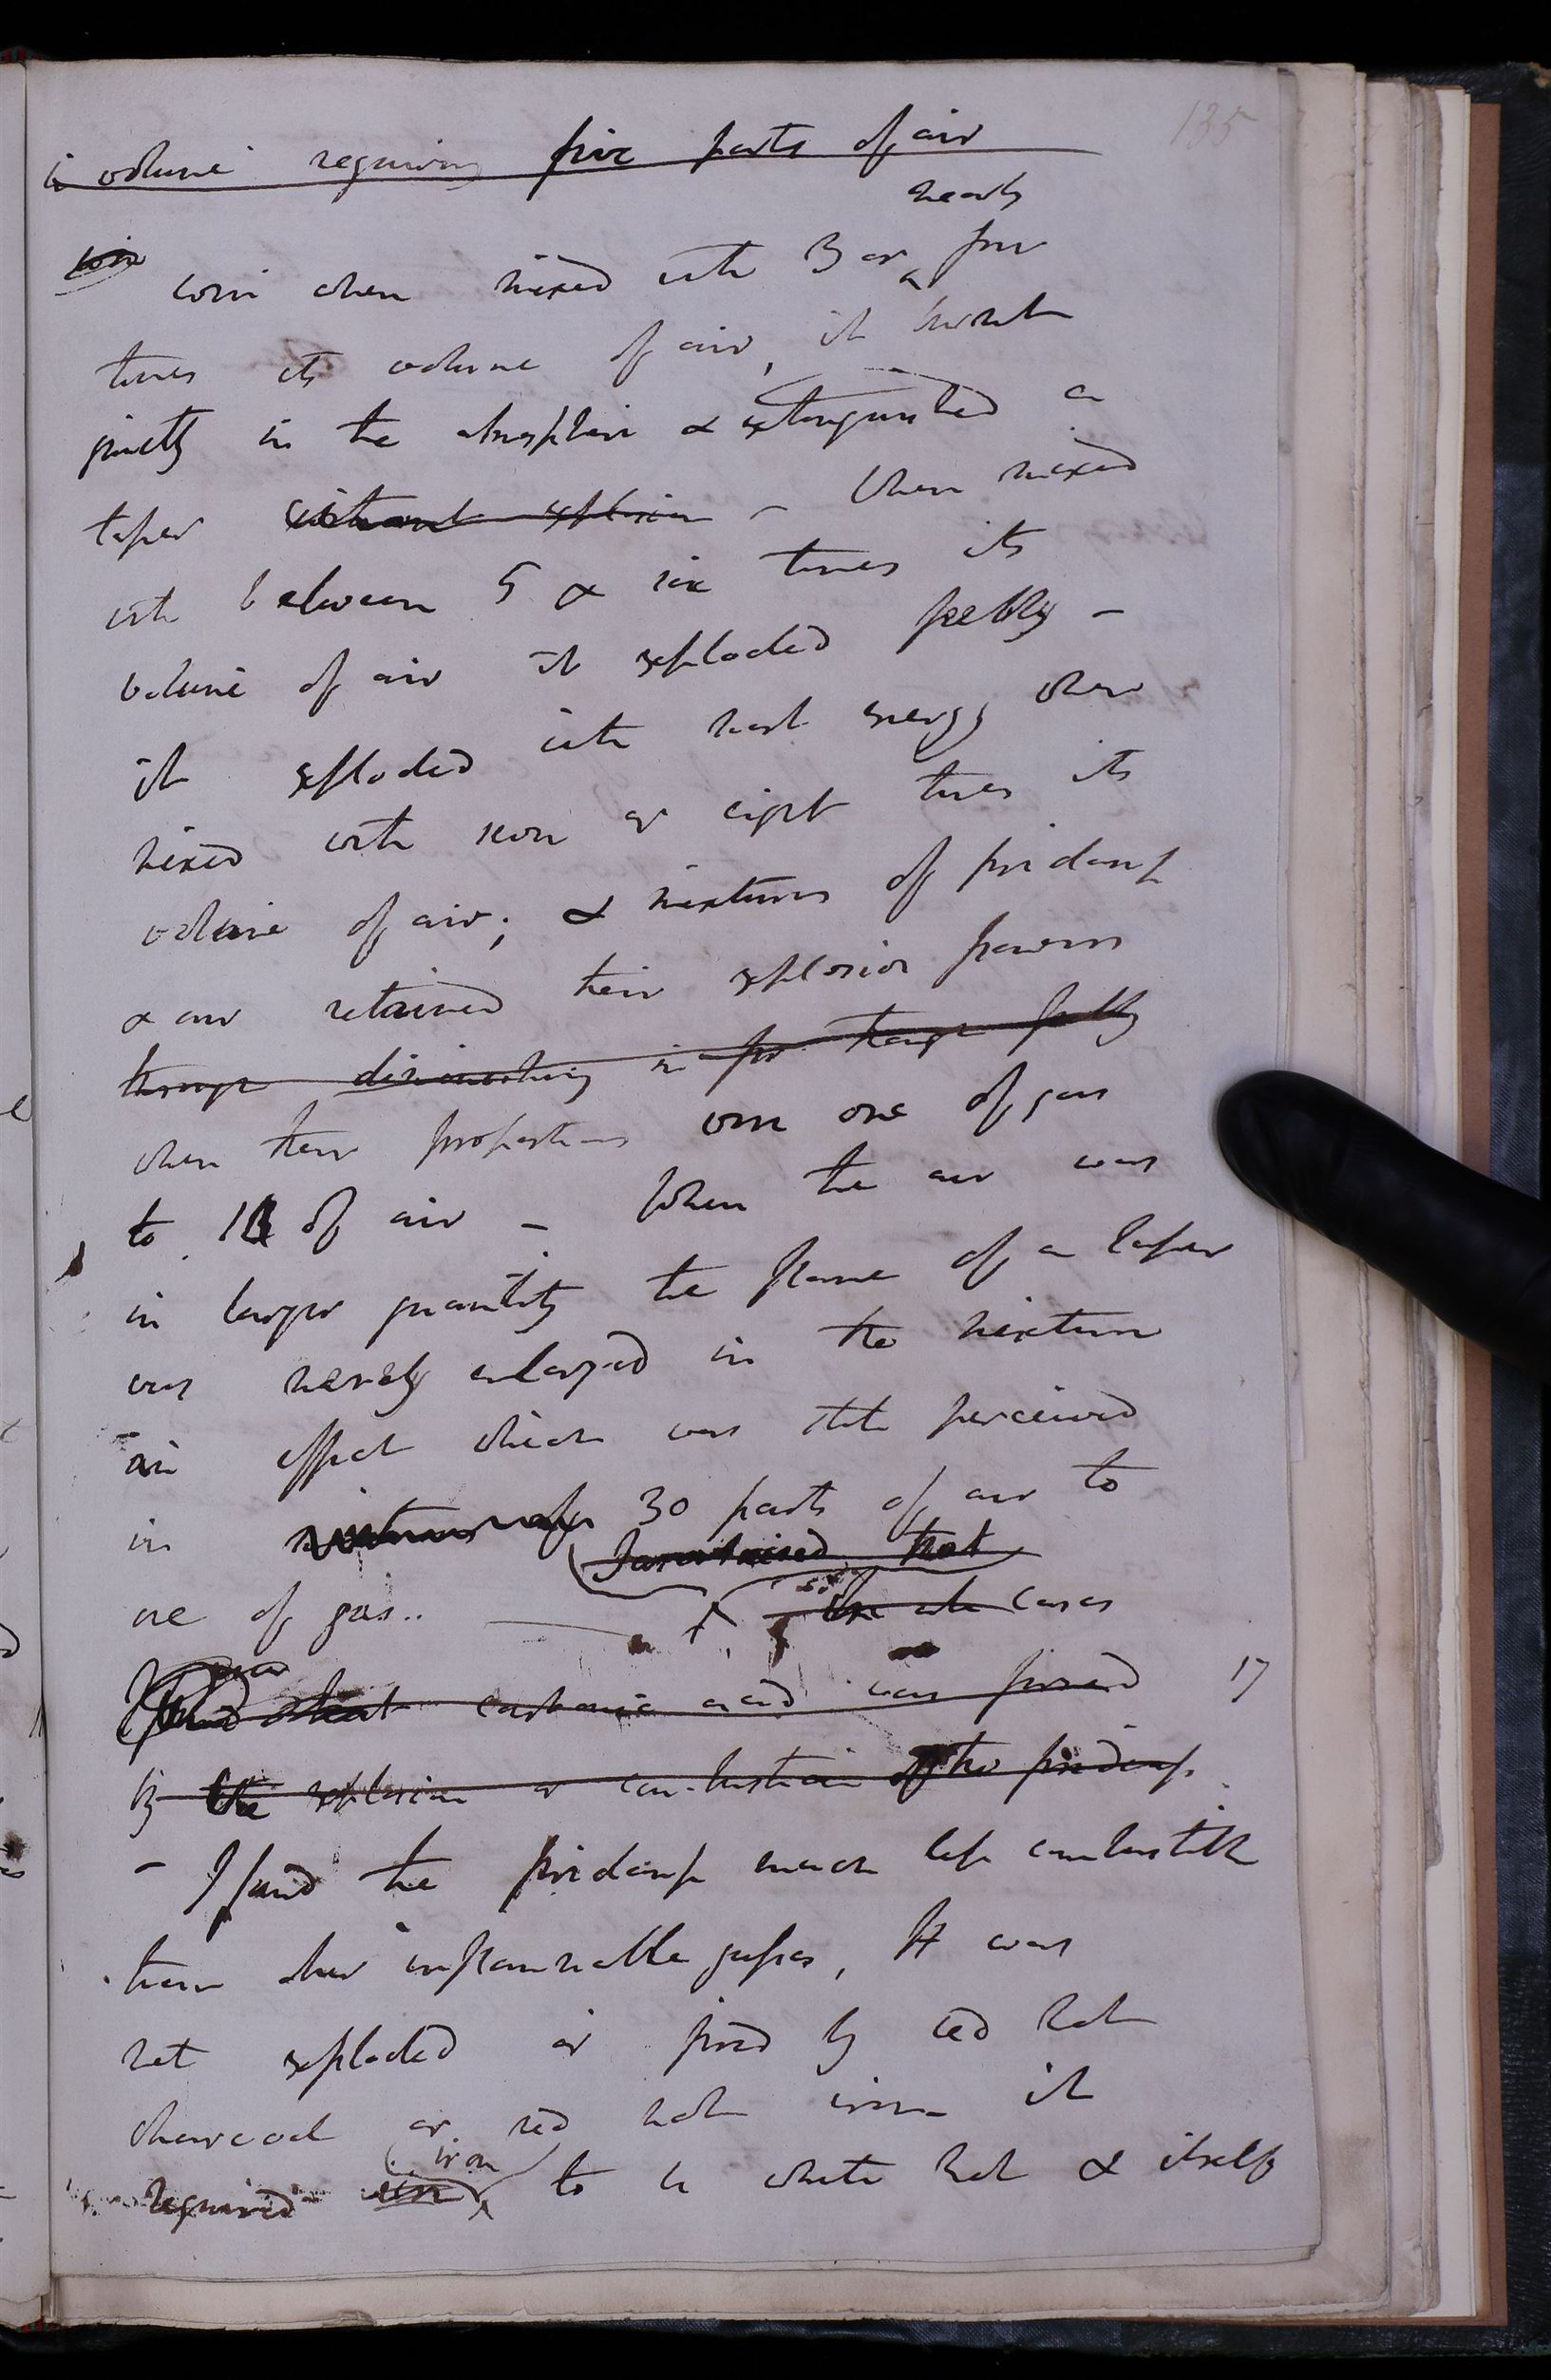 135
in volume requiring five parts of air
nearly
when mixed with 3 or four
times its volume of air, it burnt
quietly in the atmosphere & extinguished a
taper without explosion – When mixed
with between 5 & six times its
volume of air it exploded feebly –
it exploded with most energy when
mixed with seven or eight times its
volume of air; & mixtures of firedamp
& air retained their explosive powers
though diminishing in though feebly
when their proportions were one of gas
to 14 of air – When the air was
in larger quantity the flame of a taper
was merely enlarged in the mixture
an effect which was still perceived
in 30 parts of air to
that
one of gas.. cases
carbonic acid was formed 17
by the explosion or combustion of the firedamp.
– I found the firedamp much less combustible
than other inflammable gasses, It was
not exploded or fired by red hot
charcoal or red hot iron it
iron
required to be white hot & itself